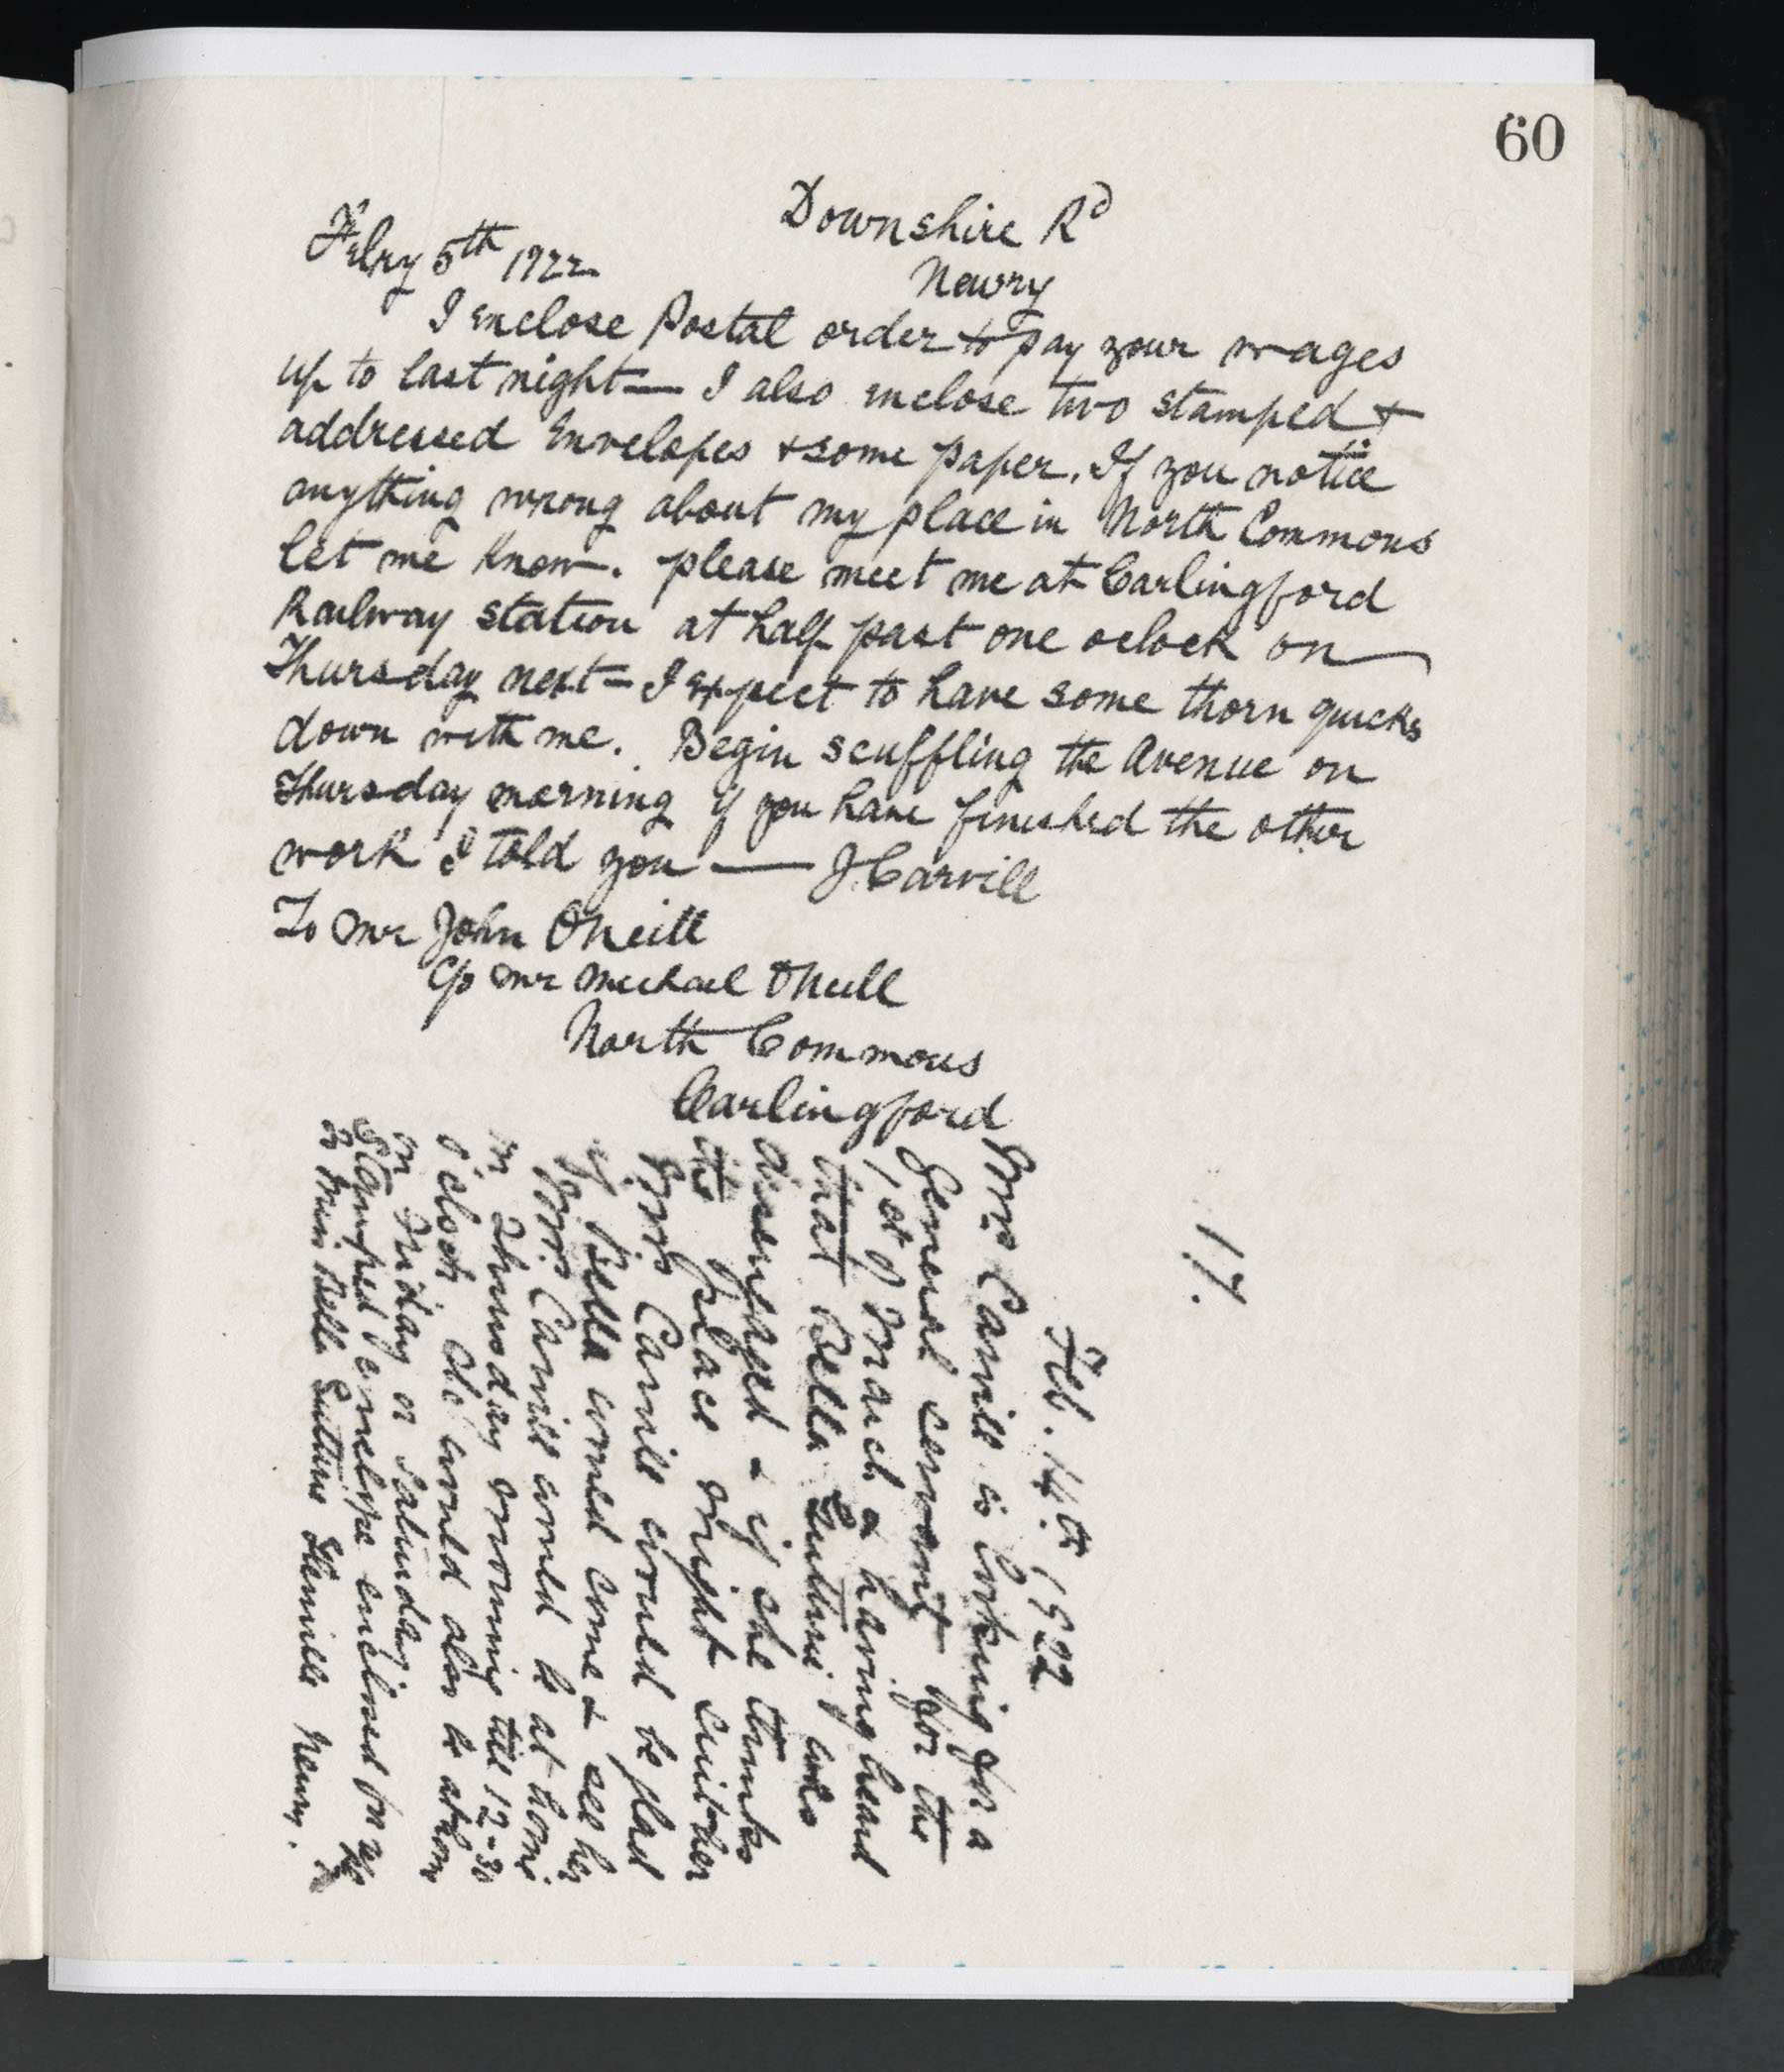 60
Downshire Rd
Febry 5th 1922
Newry
I enclose Postal order to pay your wages
up to last night — I also enclose two stamped +
addressed Envelopes + some paper. If you notice
anything wrong about my place in North Commons
let me know. please meet me at Carlingford
Railway station at half past one oclock on
Thursday next = I expect to have some thorn quicks
down with me. Begin scuffling the Avenue on
Thursday morning if you have finished the other
work I told you — J Carvill
To Mr John ONeill
C/o Mr Michael ONeill
North Commons
Carlingford
17.
Feb. 14th 1922
Mrs Carvill is looking for a
General servant for the
1st of March & having heard
that Bella Guthrie was
disengaged & if she thinks
the place might suit her
Mrs Carvill would be glad
if Bella would come & see her
Mrs Carvill would be at home
on Thursday morning till 12-30
o'clock She would also be at home
on Friday or Saturday
stamped envelope enclosed for
to Miss Bella Guthrie Newry.